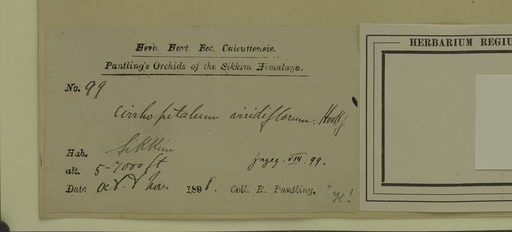 Herb. Hort. Bot. Calcuttensis.
Pantling's Orchids of the Sikkim Himalaya.
No. 99
Cirrhopetalum viridiflorum. Hook f.
Hab. Sikkim
alt. 5-7000 ft
VII. 99.
Date Oct. & Nov. 1898. Coll. R. Pantling.
HERBARIUM REGIU